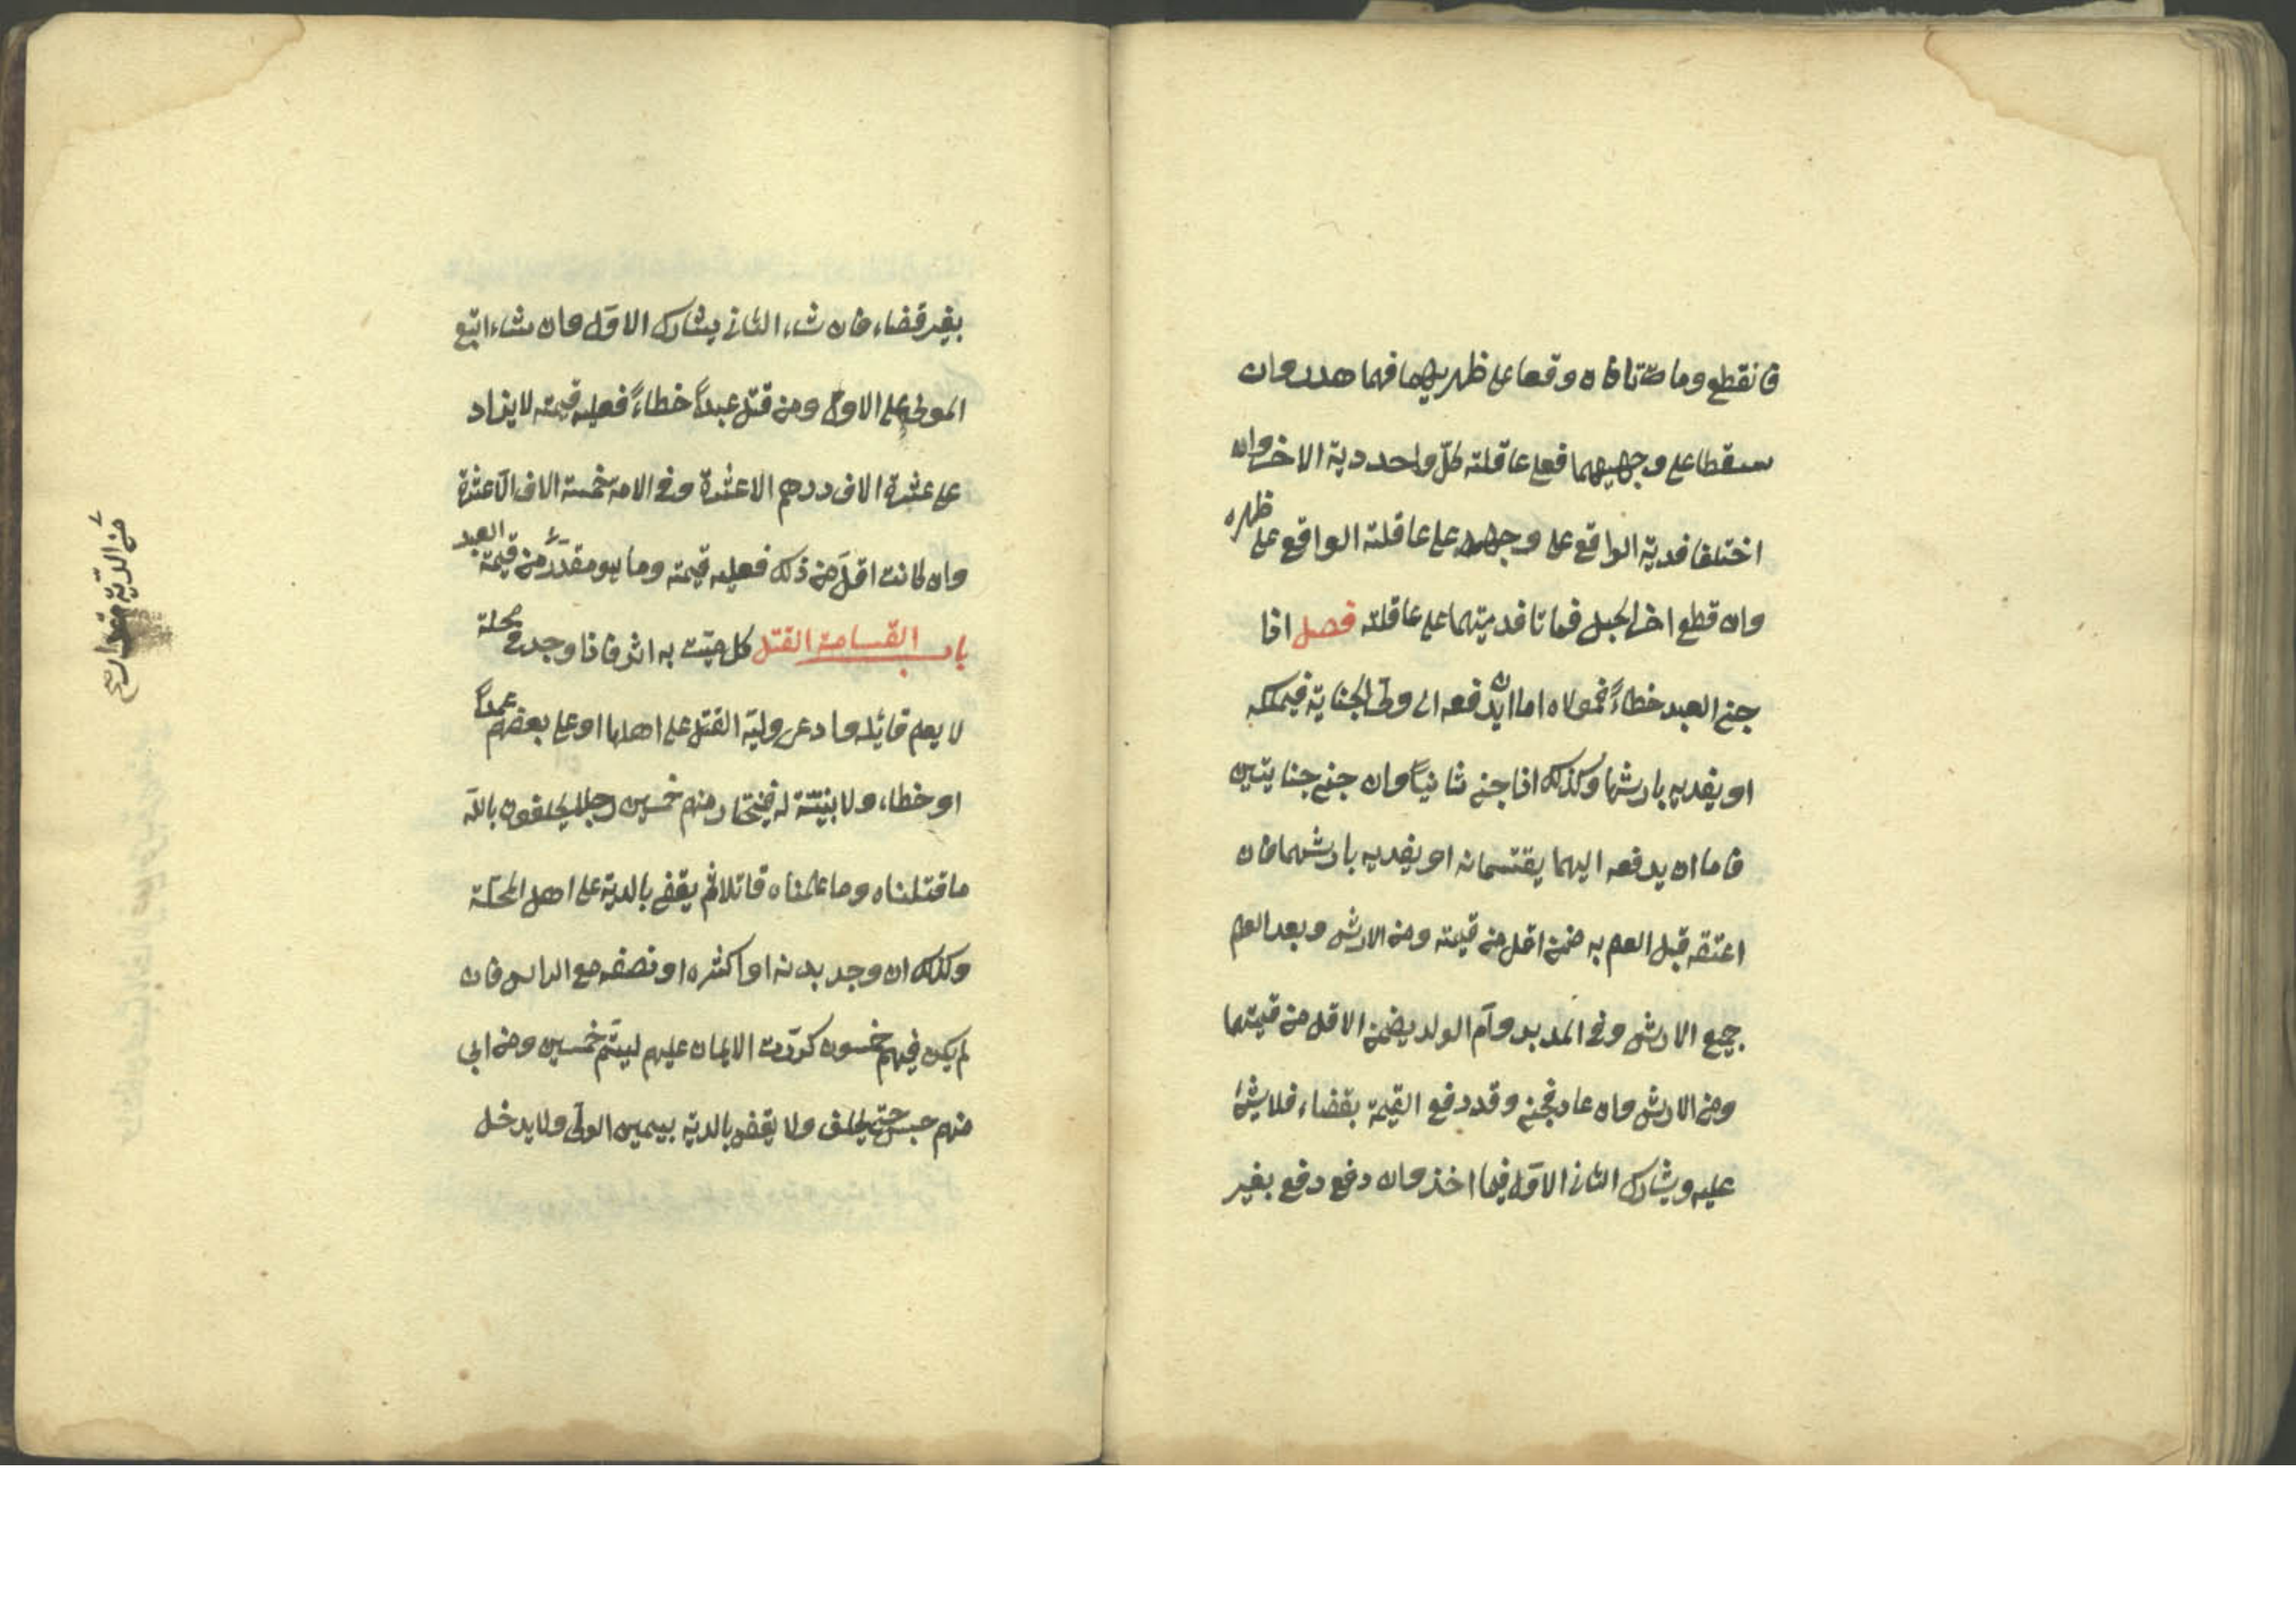 فانقطع وماتتا فان وقعا على ظهريهما فهما هدر وان
سقطا على وجهيهما فعلى عاقلة كل واحد دية الاخر وان
اختلفا فدية الواقع على وجهه على عاقلة الواقع على ظهره
وان قطع اخر الحبل فماتا فديتهما على عاقلته فصل اذا
جنى العبد خطاءً فمولاه اما ان يدفعه الى ولى الجناية فيملكه
او يفديه بارشها وكذلك اذا جنى ثانياً وان جنى جنايتين
فاما ان يدفعه اليهما يقتسمانه او يفديه بارشهما فان
اعتقه قبل العلم به ضمن اقل من قيمته ومن الارش وبعد العلم
جميع الارش وفى المدبر وام الولد يضمن الاقل من قيمتهما
ومن الارش وان عاد فجنى وقد دفع القيمة بقضاء فلا شئ
عليه ويشارك الثانى الاول فيما اخذ وان دفع دفع بغير
بغير قضاء فان شاء الثانى يشارك الاول وان شاء اتبع
المولى على الاول ومن قتل عبداً خطاءً فعليه قيمته لا يزاد
على عشرة الاف درهم الا عشرة وفى الامة خمسة الاف الا عشرة
وان كانت اقل من ذلك فعليه قيمته وما هو مقدر من قيمة العبد
باب القسامة القتل كل ميت به اثر فاذا وجد فى محلة
لا يعلم قاتله وادعى ولية القتل على اهلها او على بعضهم عمداً
او خطاء ولا بينة له فيختار منهم خمسين رجلا يحلفون بالله
ما قتلناه وما علمناه قاتلا ثم يقضى بالدية على اهل المحلة
وكذلك ان وجد بدنه او اكثره او نصفه مع الراس فان
لم يكن فيهم خمسون كررت الايمان عليهم ليتم خمسين ومن ابى
منهم حبس حتى يحلف ولا يقضى بالدية بيمين الولى ولا يدخل
من الدية